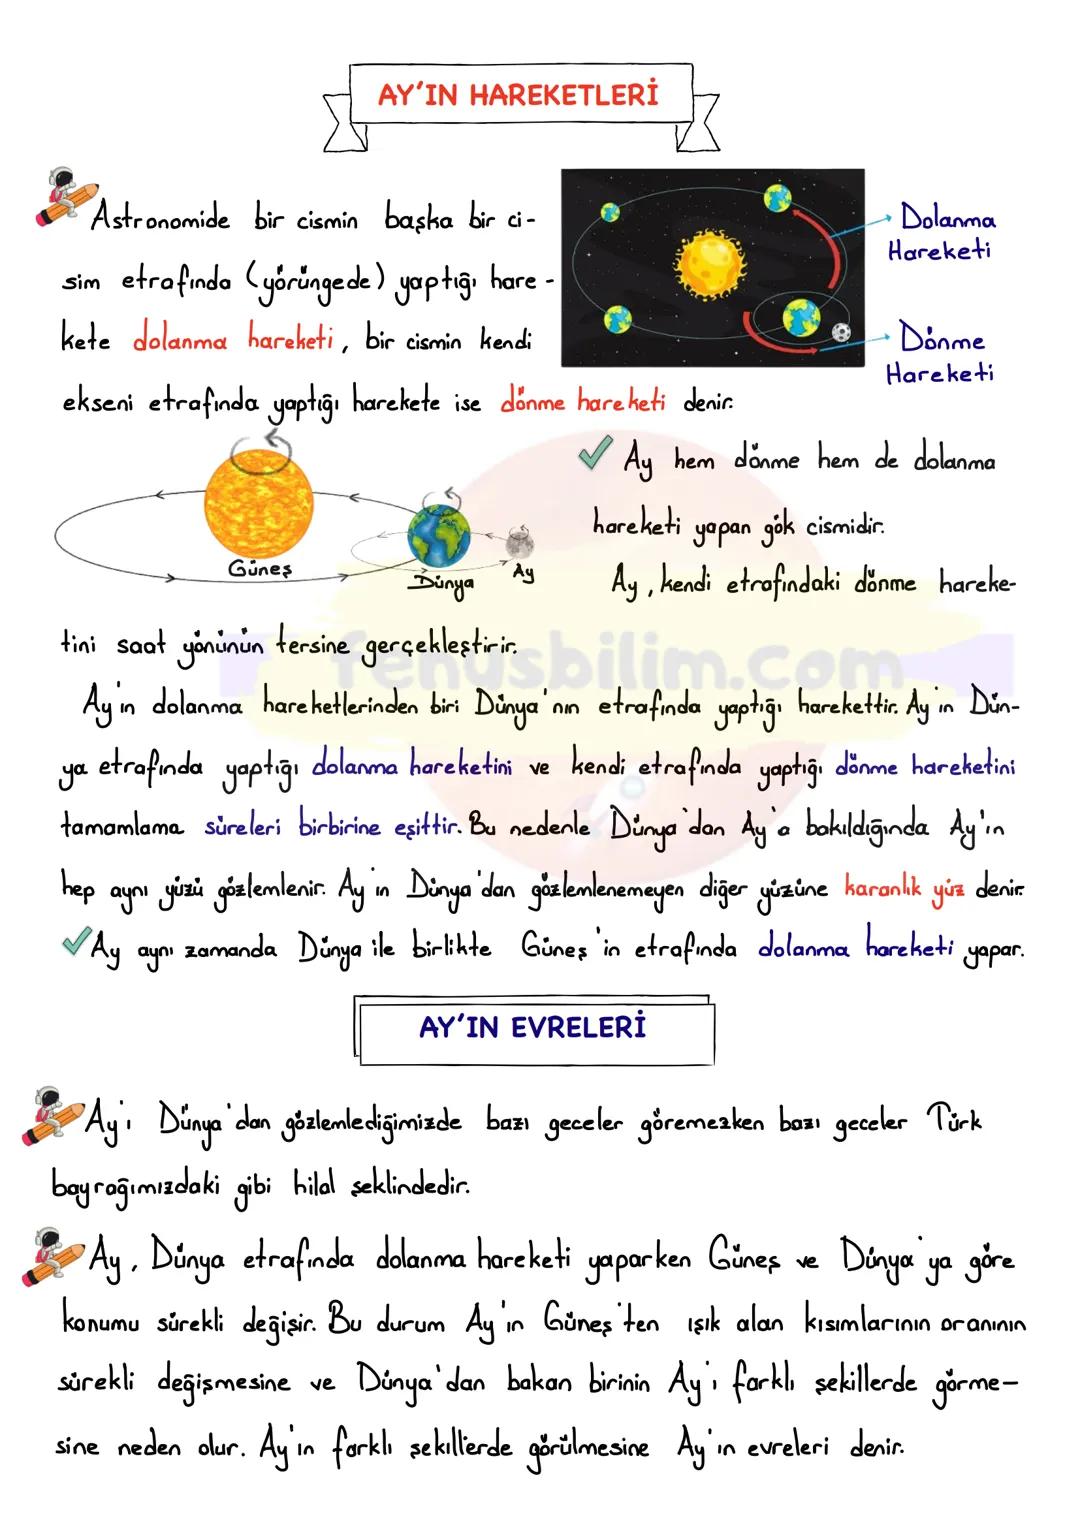 AY'IN HAREKETLERİ
Astronomide bir cismin başka bir ci-
sim etrafında (yörüngede) yaptığı hare-
kete dolanma hareketi, bir cismin kendi
ekseni etrafında yaptığı harekete ise dönme hareketi denir.
Dolanma
Hareketi
Dönme
Hareketi
Güneş
Dünya
Ay
✓ Ay hem dönme hem de dolanma
hareketi yapan gök cismidir.
Ay, kendi etrafındaki dönme hareke-
tini saat yönünün tersine gerçekleştirir.
fenusbilim.com
Ay'ın dolanma hareketlerinden biri Dünya'nın etrafında yaptığı harekettir. Ay'ın Dün-
ya etrafında yaptığı dolanma hareketini ve kendi etrafında yaptığı dönme hareketini
tamamlama süreleri birbirine eşittir. Bu nedenle Dünya'dan Ay'a bakıldığında Ay'ın
hep aynı yüzü gözlemlenir. Ay'ın Dünya'dan gözlemlenemeyen diğer yüzüne karanlık yüz denir.
✓ Ay aynı zamanda Dünya ile birlikte Güneş'in etrafında dolanma hareketi yapar.
AY'IN EVRELERİ
Ay'ı Dünya'dan gözlemlediğimizde bazı geceler göremezken bazı geceler Türk
bayrağımızdaki gibi hilal şeklindedir.
Ay, Dünya etrafında dolanma hareketi yaparken Güneş ve Dünya'ya göre
konumu sürekli değişir. Bu durum Ay'ın Güneş'ten ışık alan kısımlarının oranının
sürekli değişmesine ve Dünya'dan bakan birinin Ay'ı farklı şekillerde görme-
sine neden olur. Ay'ın farklı şekillerde görülmesine Ay'ın evreleri denir.